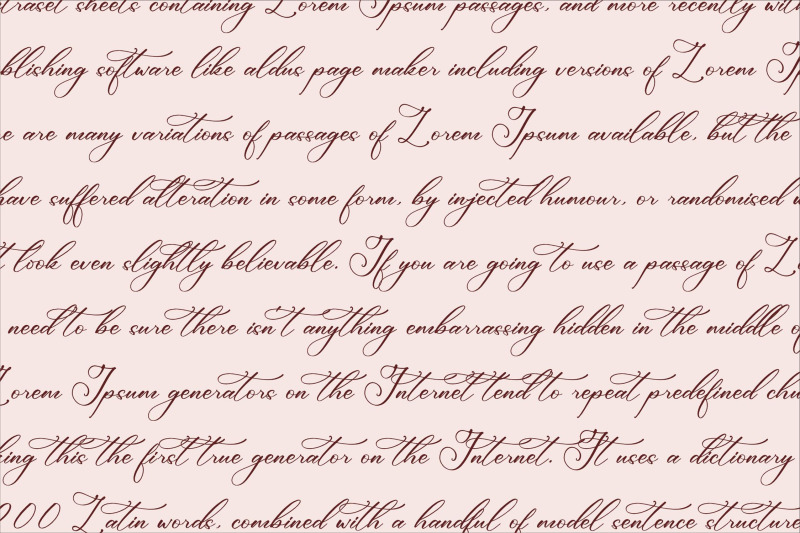 traset sheets containing Lorem Ipsum passages, and more recently with
blishing software like aldus page maker including versions of Lorem Ip
e are many variations of passages of Lorem Ipsum available, but the
have suffered alteration in some form, by injected humour, or randomised w
't look even slightly believable. If you are going to use a passage of Lo
need to be sure there isn't anything embarrassing hidden in the middle o
Lorem Ipsum generators on the Internet tend to repeat predefined chu
king this the first true generator on the Internet. It uses a dictionary
200 Latin words, combined with a handful of model sentence structure